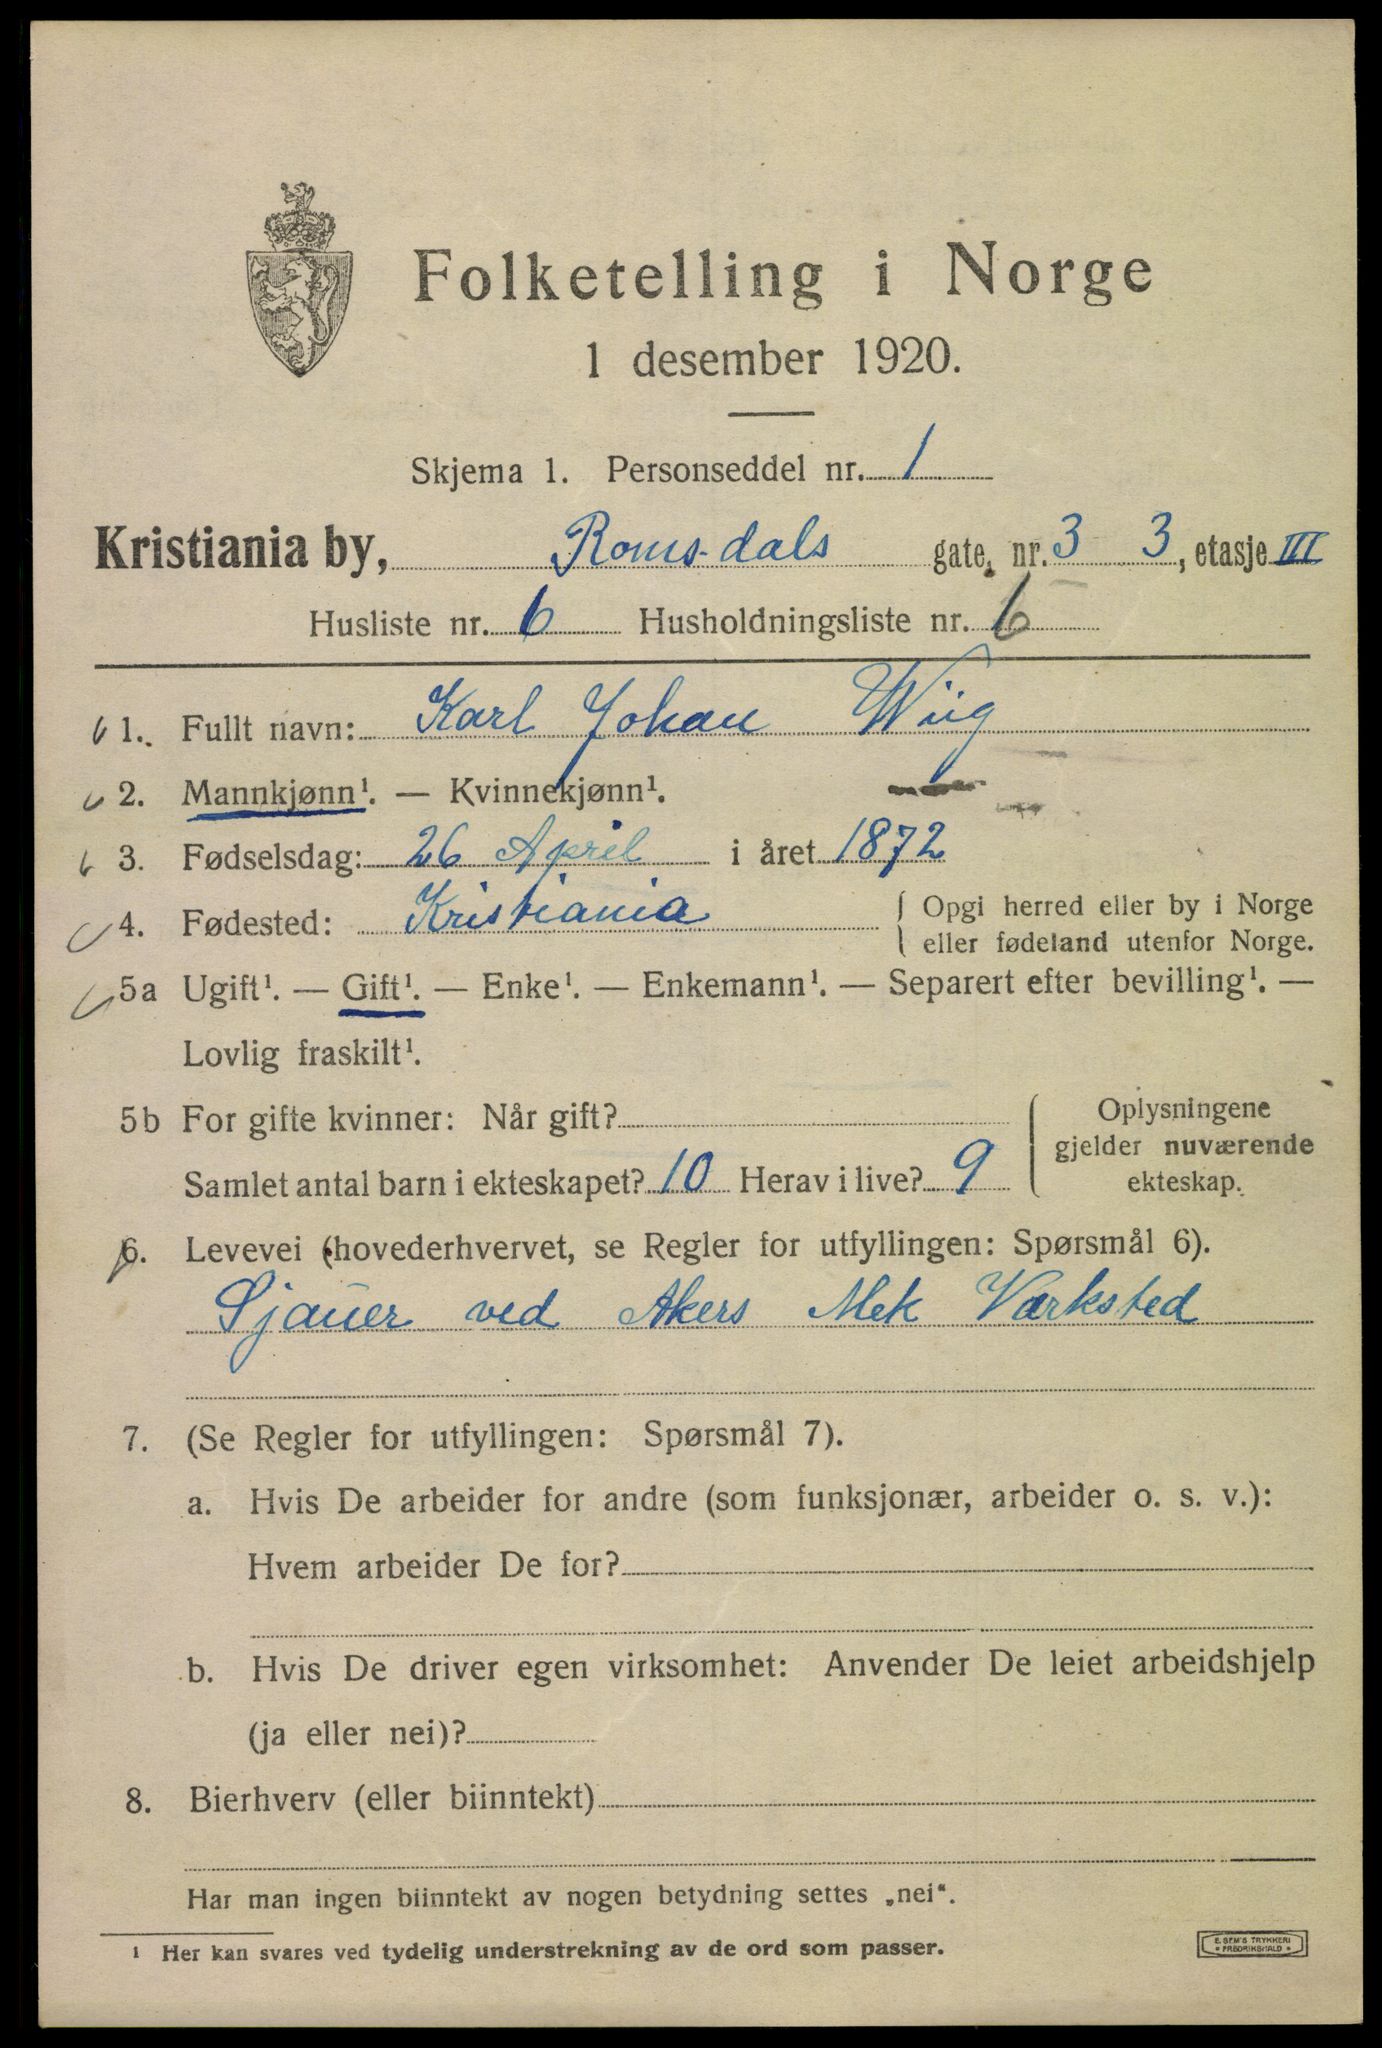 Folketelling i Norge
1 desember 1920.
Skjema 1. Personseddel nr. 1
Kristiania by, Romsdals gate, nr. 3 3, etasje III
Husliste nr. 6 Husholdningsliste nr. 6
1. Fullt navn: Karl Johan Wiig
2. Mannkjønn¹. — Kvinnekjønn¹.
3. Fødselsdag: 26 April i året 1872
4. Fødested: Kristiania { Opgi herred eller by i Norge
eller fødeland utenfor Norge.
5a Ugift¹. — Gift¹. — Enke¹. — Enkemann¹. — Separert efter bevilling¹. —
Lovlig fraskilt¹.
5b For gifte kvinner: Når gift?
Samlet antal barn i ekteskapet? 10 Herav i live? 9
Oplysningene
gjelder nuværende
ekteskap.
6. Levevei (hovederhvervet, se Regler for utfyllingen: Spørsmål 6).
Sjauer ved Akers Mek Værksted
7. (Se Regler for utfyllingen: Spørsmål 7).
a. Hvis De arbeider for andre (som funksjonær, arbeider o. s. v.):
Hvem arbeider De for?
b. Hvis De driver egen virksomhet: Anvender De leiet arbeidshjelp
(ja eller nei)?
8. Bierhverv (eller biinntekt)
Har man ingen biinntekt av nogen betydning settes „nei“.
¹ Her kan svares ved tydelig understrekning av de ord som passer.
E. SEM'S TRYKKERI
• FREDRIKSHALD •